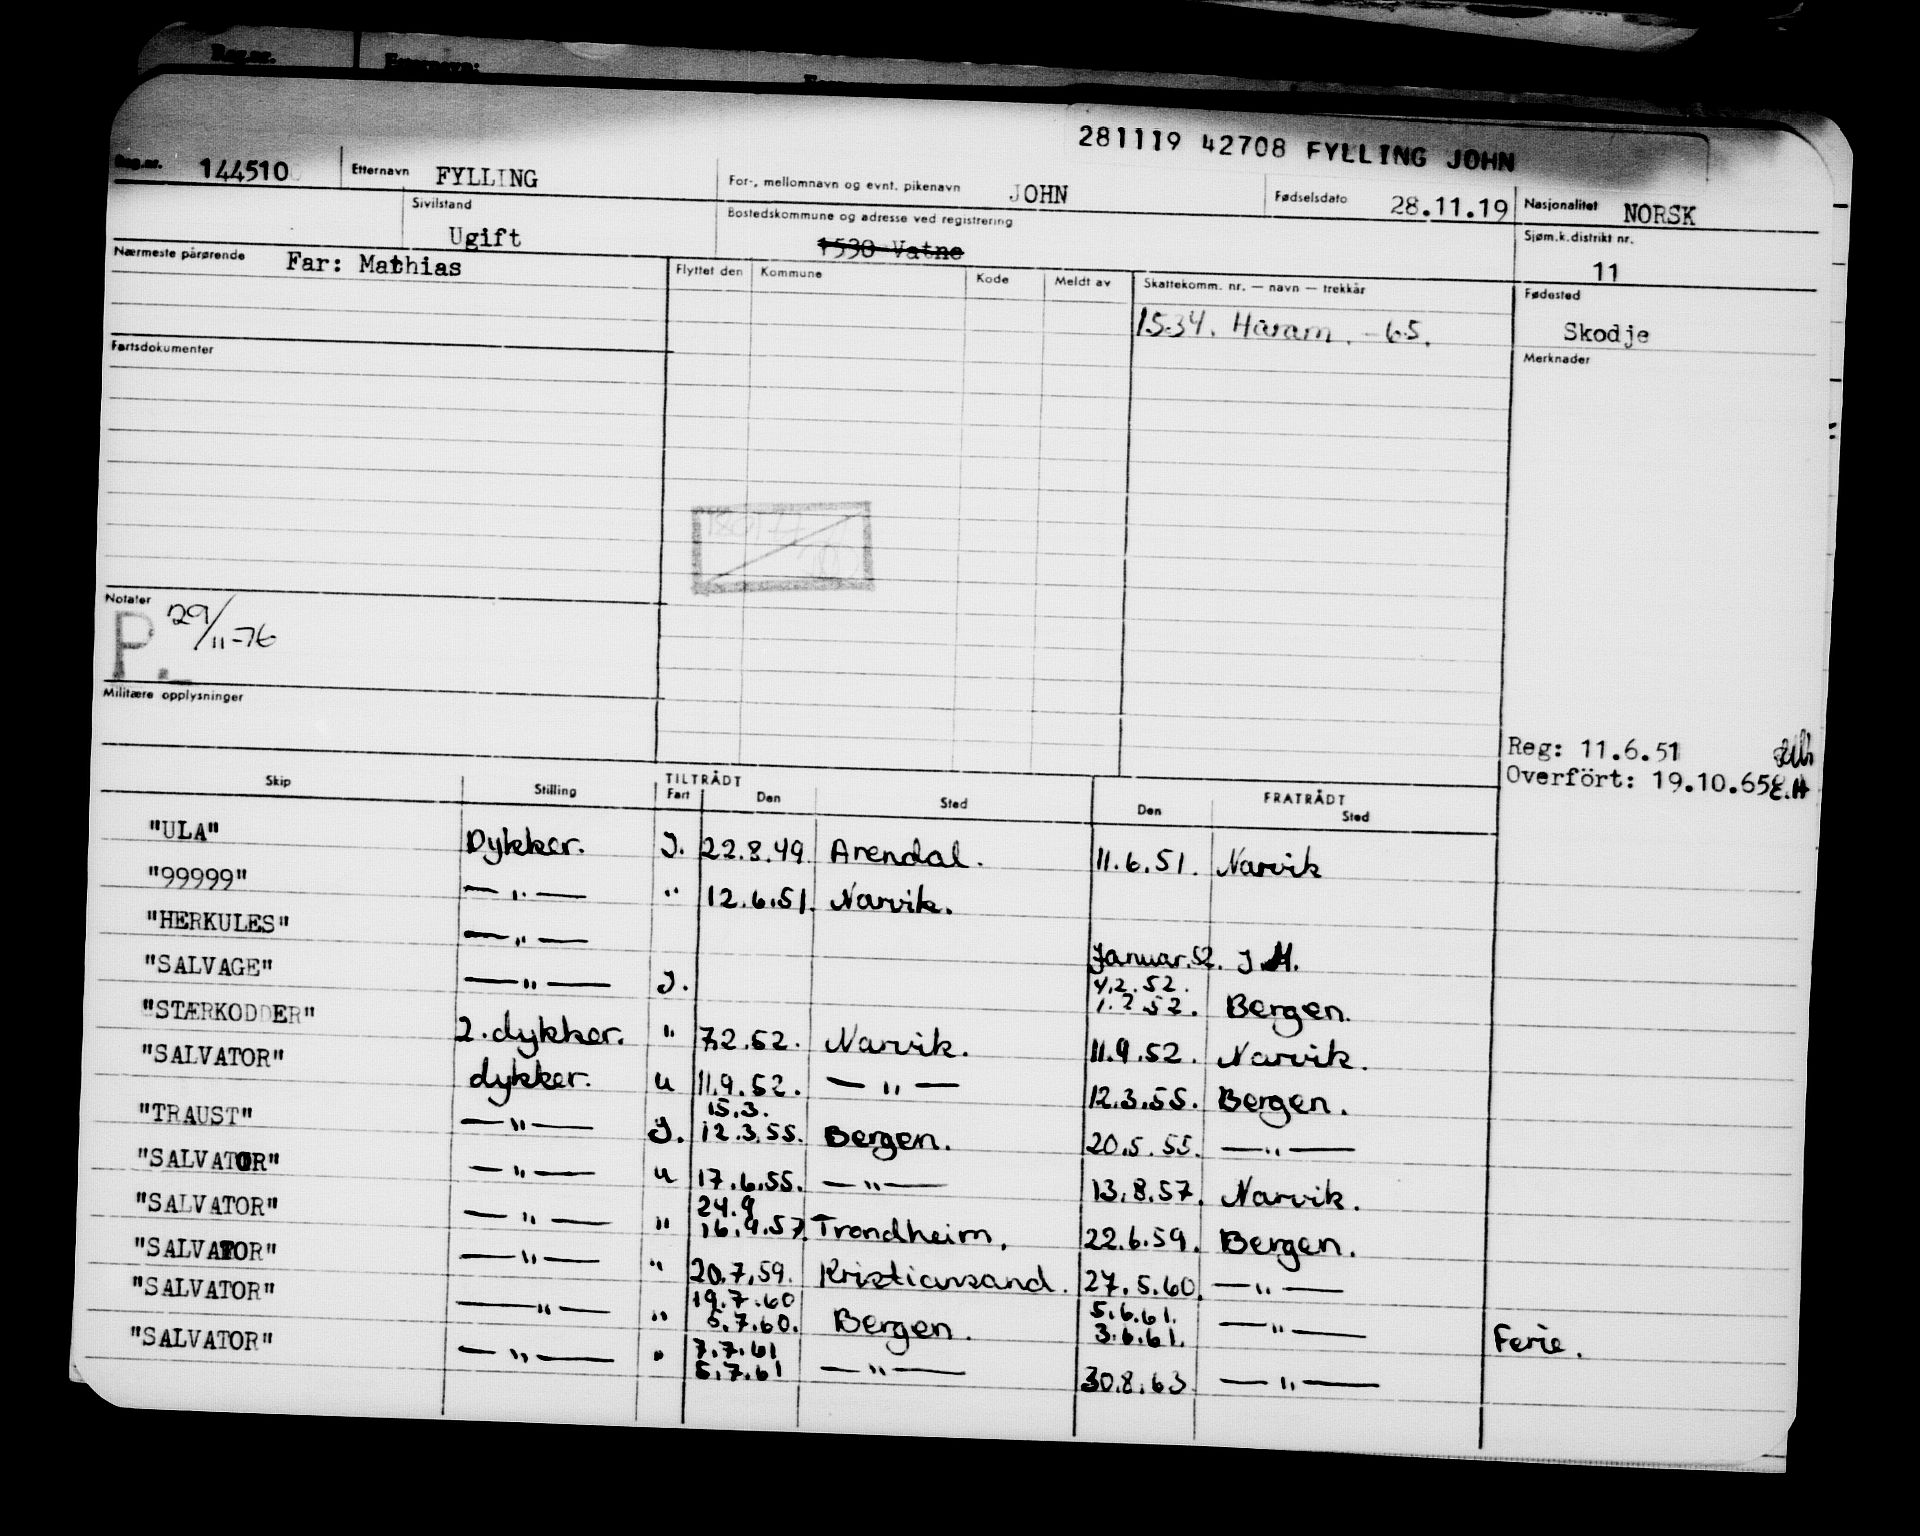 Reg.nr. Etternavn:
281119 42708 FYLLING JOHN
Reg.nr. 144510 Etternavn FYLLING For-, mellomnavn og evnt. pikenavn JOHN Fødselsdato 28.11.19 Nasjonalitet NORSK
Sivilstand Ugift Bostedskommune og adresse ved registrering 1530 Vatne Sjøm.k.distrikt nr. 11
Nærmeste pårørende Far: Mathias Flyttet den Kommune Kode Meldt av Skattekomm. nr. — navn — trekkår Fødested
1534. Haram. - 65. Skodje
Fartsdokumenter Merknader
Notater
P. 29/11-76
Militære opplysninger
Reg: 11.6.51
Overfört: 19.10.65 E.H
Skip Stilling TILTRÅDT FRATRÅDT
Fart Den Sted Den Sted
"ULA" Dykker. J. 22.8.49. Arendal. 11.6.51. Narvik
"99999" — " — " 12.6.51. Narvik.
"HERKULES" — " — Januar.52. J.M.
"SALVAGE" — " — J. 4.2.52.
1.2.52. Bergen.
"STÆRKODDER" 2. dykker. " 7.2.52. Narvik. 11.9.52. Narvik.
"SALVATOR" dykker. u 11.9.52. — " — 12.3.55. Bergen.
15.3.
"TRAUST" — " — J. 12.3.55. Bergen. 20.5.55. — " —
"SALVATOR" — " — u 17.6.55. — " — 13.8.57. Narvik.
24.9
"SALVATOR" — " — " 16.9.57. Trondheim. 22.6.59. Bergen.
"SALVATOR" — " — " 20.7.59. Kristiansand. 27.5.60. — " —
19.7.60 5.6.61.
"SALVATOR" — " — " 5.7.60. Bergen. 3.6.61. — " — Ferie.
7.7.61
"SALVATOR" — " — " 5.7.61 — " — 30.8.63. — " —